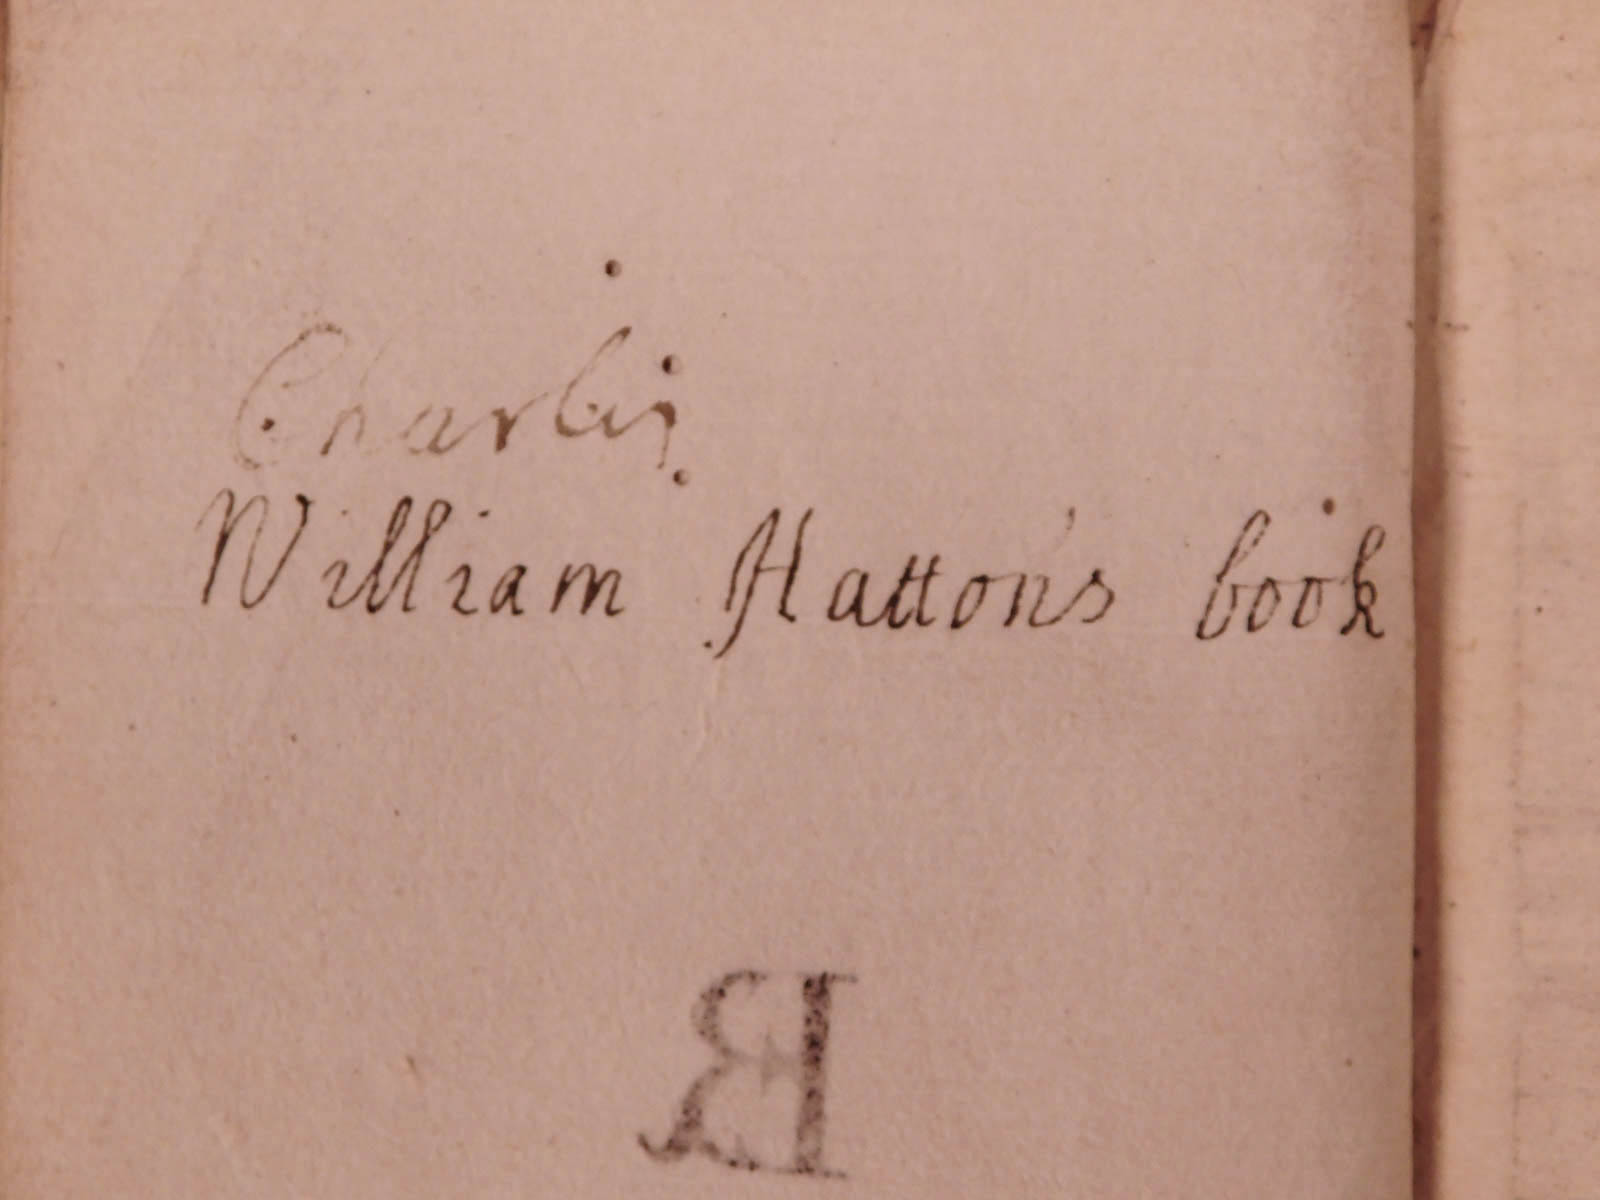 Charlis
William Hatton's book
R